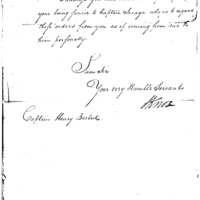 your being senior to Captain Savage who is to regard
these orders from you as if coming from me to
him personally.
I am Sir
Your very Humble Servant
HKnox
Captain Henry Burbeck